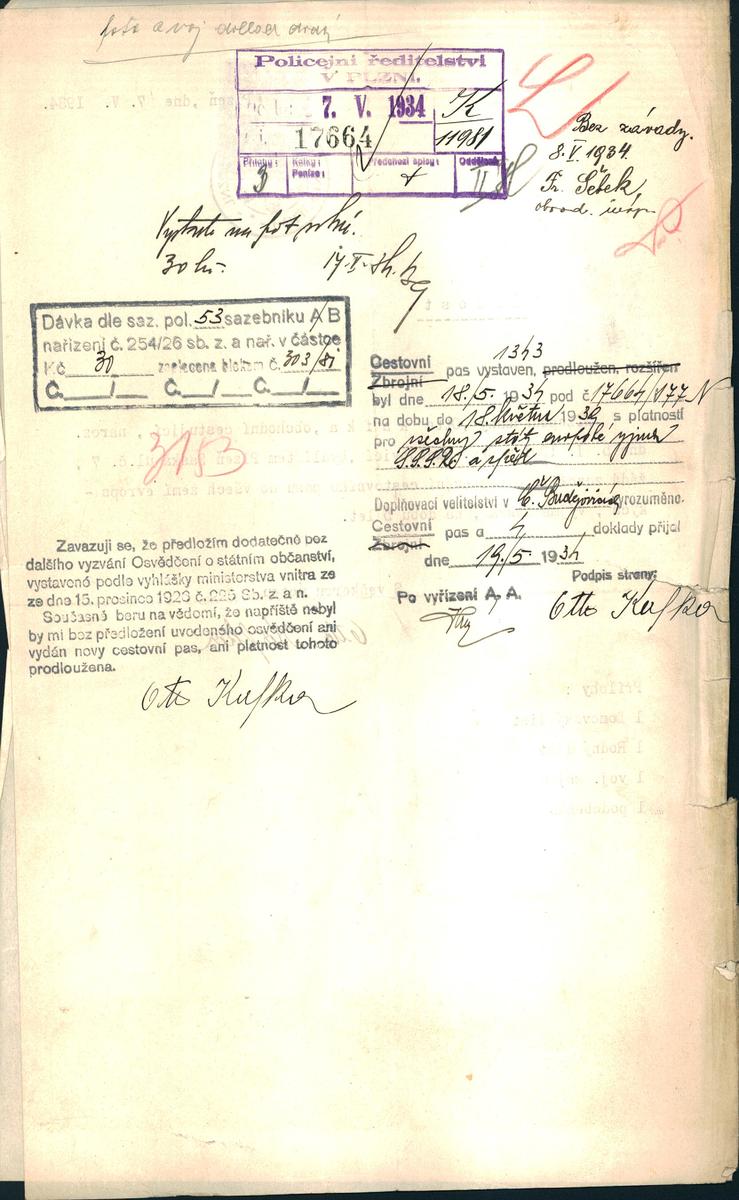 foto a voj
Policejní ředitelství
V PLZNI.
7. V. 1934
K
17664
11981
Přílohy:
3
Kolky:
Peníze:
Předchozí spisy:
+
Oddělení
II
Bez závady.
8.V.1934.
Fr. Šebek
obvod. insp.
30 Kč.
Dávka dle saz. pol. 53 sazebníku A/B
nařízení č. 254/26 sb. z. a nař. v částce
Kč 30 zaplacena blokem č. 303/81
Č. / Č. / Č. /
313
1343
Cestovní pas vystaven, prodloužen, rozšířen
Zbrojní
byl dne 18./5. 1934 pod č 17664/177 N
na dobu do 18. května 1939, s platností
pro všechny státy
S.S.S.R. a zpět
Doplňovací velitelství v Č. Budějovicích vyrozuměno.
Cestovní pas a 4 doklady přijal
Zbrojní
dne 19./5. 1934
Podpis strany:
Po vyřízení A. A.
Otto Kafka
Zavazuji se, že předložím dodatečně bez
dalšího vyzvání Osvědčení o státním občanství,
vystavené podle vyhlášky ministerstva vnitra ze
ze dne 15. prosince 1926 č. 225 Sb. z. a n.
Současně beru na vědomí, že napříště nebyl
by mi bez předložení uvedeného osvědčení ani
vydán nový cestovní pas, ani platnost tohoto
prodloužena.
Otto Kafka